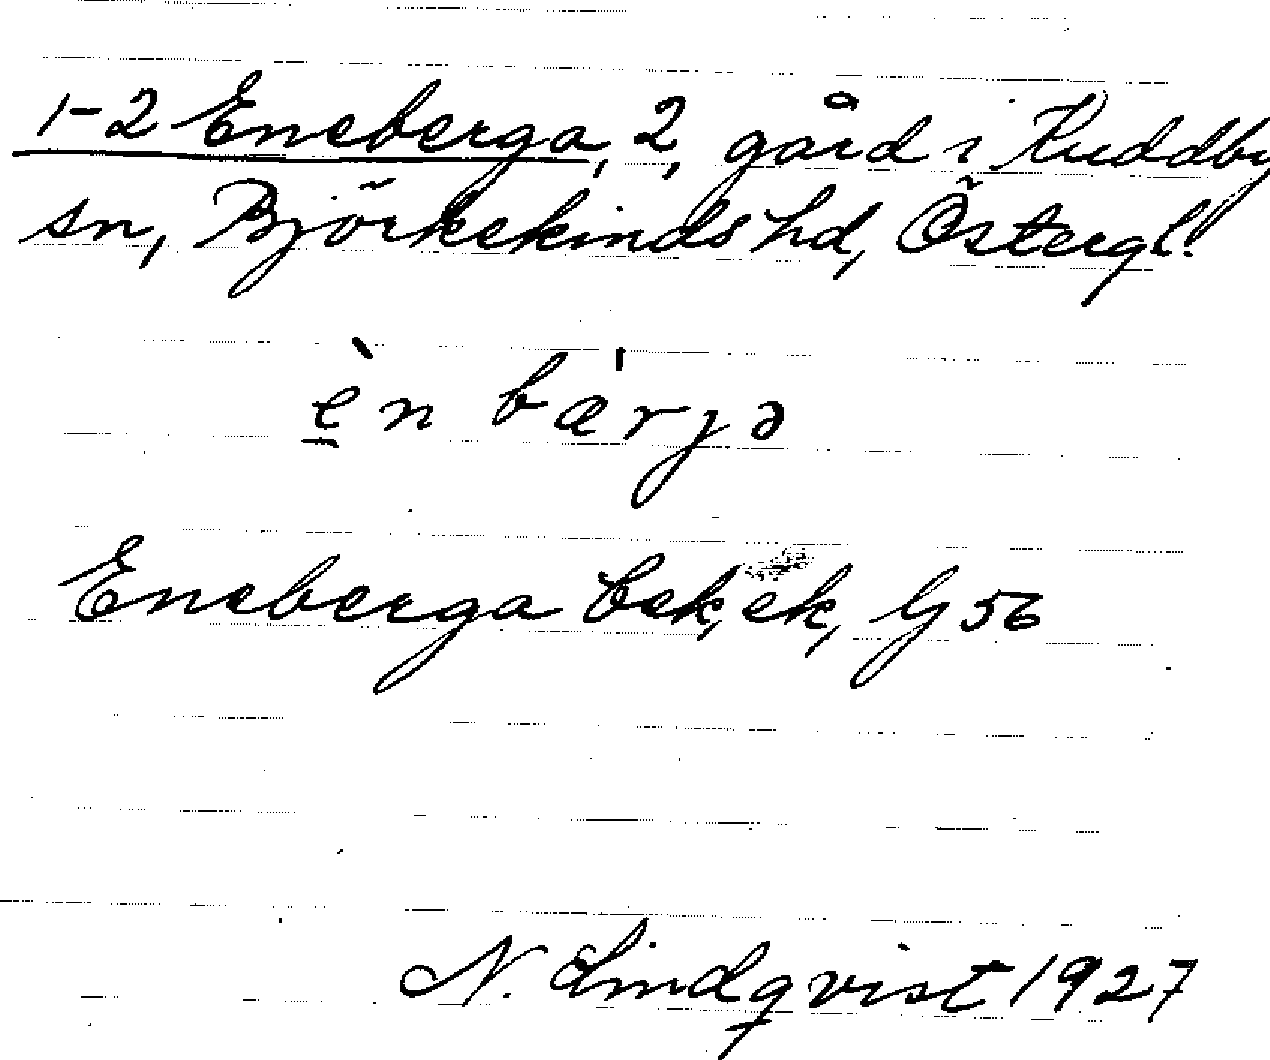 1-2 Eneberga, 2, gård i Kuddby
sn, Björkekinds hd, Östergl.
è̱n bærjə
Eneberga bek, ek, G 56
N. Lindqvist 1927